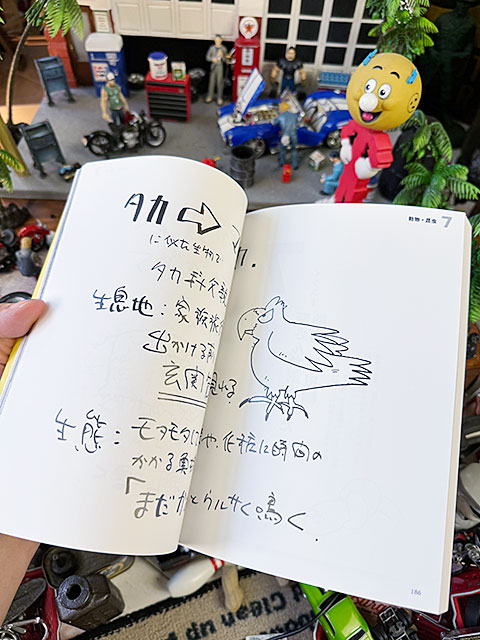 動物・昆虫 7
タカ⇨ カ.
に似た生物で
タカ科
生息地:家族旅
出かける
玄関 れる
生態:モタモタ や、化粧に時間の
かかる
「まだか とウルサく鳴く.
186
Clean up